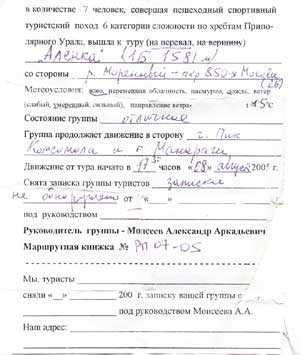 в количестве 7 человек, совершая пешеходный спортивный
туристский поход 6 категории сложности по хребтам Припо-
лярного Урала, вышла к туру (на перевал, на вершину)
„Аленка" (1Б 1581 м)
со стороны р. Моренный – пер 350 х Москвы
(2Б)
Метеоусловия: ясно, переменная облачность, пасмурно, дождь, ветер
(слабый, умеренный, сильный), направление ветра- t +5°c
Состояние группы отличное
Группа продолжает движение в сторону г. Пик
Комсомола и г. Манарага
Движение от тура начато в 17 часов «08» август 2005 г.
Снята записка группы туристов записка
не обнаружена от "___" 
под руководством
Руководитель группы - Моисеев Александр Аркадьевич
Маршрутная книжка № РП 07-05
Мы. туристы
сняли «__» 200 г. записку вашей группы с
под руководством Моисеева А.А.
Наш адрес: